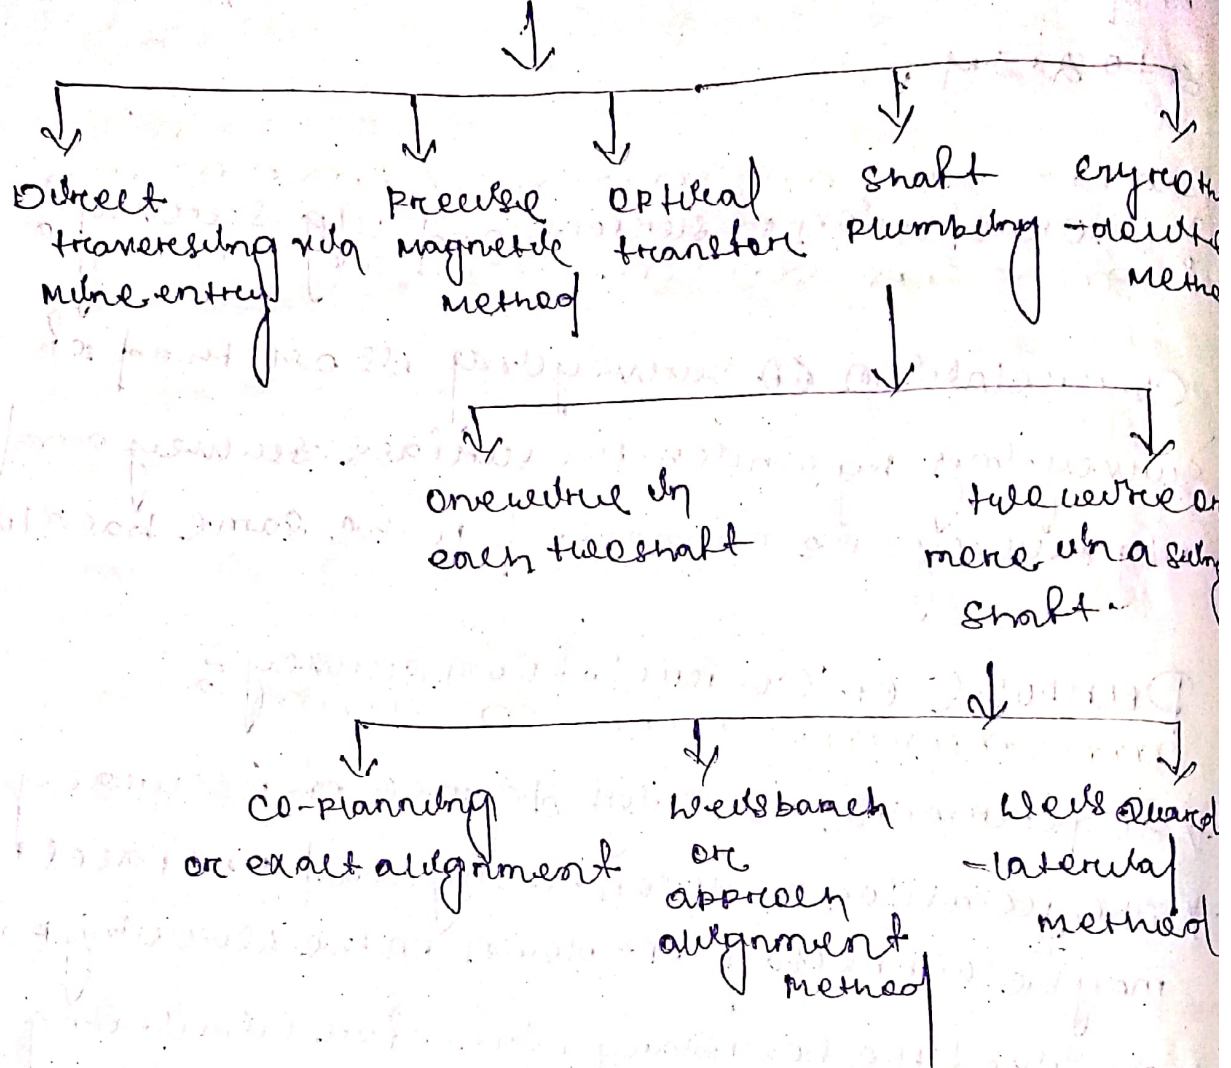 Direct
traversing via
mine entry
Precise
magnetic
method
optical
transfer
shaft
plumbing
Gyroth
-deolite
Metho
one wire in
each two shaft
two wire or
more in a sing
shaft.
co-planning
or exact alignment
Weisbach
or
approach
alignment
method
Weis Quard
-laterial
method